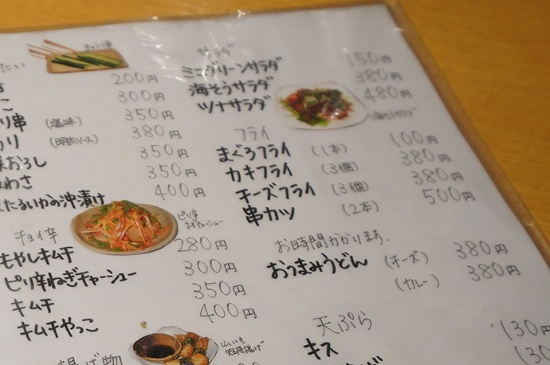 たい
200円
こ 300円
り串 (塩味) 350円
(明太ソース) 380円
おろし 350円
わさ 350円
たるいかの沖漬け 400円
チョイ辛
もやしキムチ 280円
ピリ辛ねぎチャーシュー 300円
キムチ 350円
キムチやっこ 400円
ピリ辛
ねぎチャーシュー
揚げ物
山いも
サラダ
ミニグリーンサラダ 150円
海そうサラダ 380円
ツナサラダ 480円
海そうサラダ
フライ
まぐろフライ (1本) 100円
カキフライ (3個) 380円
チーズフライ (3個) 380円
串カツ (2本) 500円
お時間かかります。
おつまみうどん (チーズ) 380円
(カレー) 380円
天ぷら
キス 130円
130円